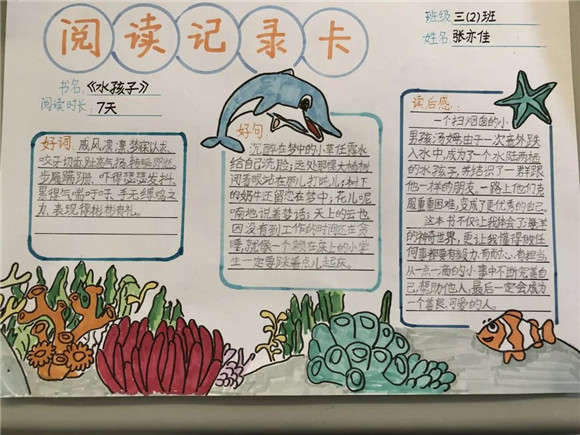 阅读记录卡
班级 三(2)班
姓名 张亦佳
书名:《水孩子》
阅读时长: 7天
好词: 威风凛凛、梦寐以求、
咬牙切齿、趾高气扬、
步履蹒跚、吓得瑟瑟发抖、
累得气喘吁吁、手无缚鸡之
力、表现得彬彬有礼。
好句
沉醉在梦中的小草任露水
给自己洗脸;远处那棵大榆树
闭着眼站在那儿打盹儿;树下
的奶牛还留恋在梦中;花儿呢
喃地说着梦话;天上的云也
因没有到工作的时间还在贪
睡,就像一个赖在床上的小学
生一定要踩着点儿起床。
读后感:
一个扫烟囱的小
男孩汤姆,由于一次意外跌
入水中,成为了一个水陆两栖
的水孩子,并结识了一群跟
他一样的朋友。一路上他们克
服重重困难,变成了更优秀的自己。
这本书不仅让我体会了海洋
的神奇世界,更让我懂得做任
何事都要有毅力、有耐心、有担当,
从一点一滴的小事中不断完善自
己,帮助他人,最后一定会成为
一个善良、可爱的人。